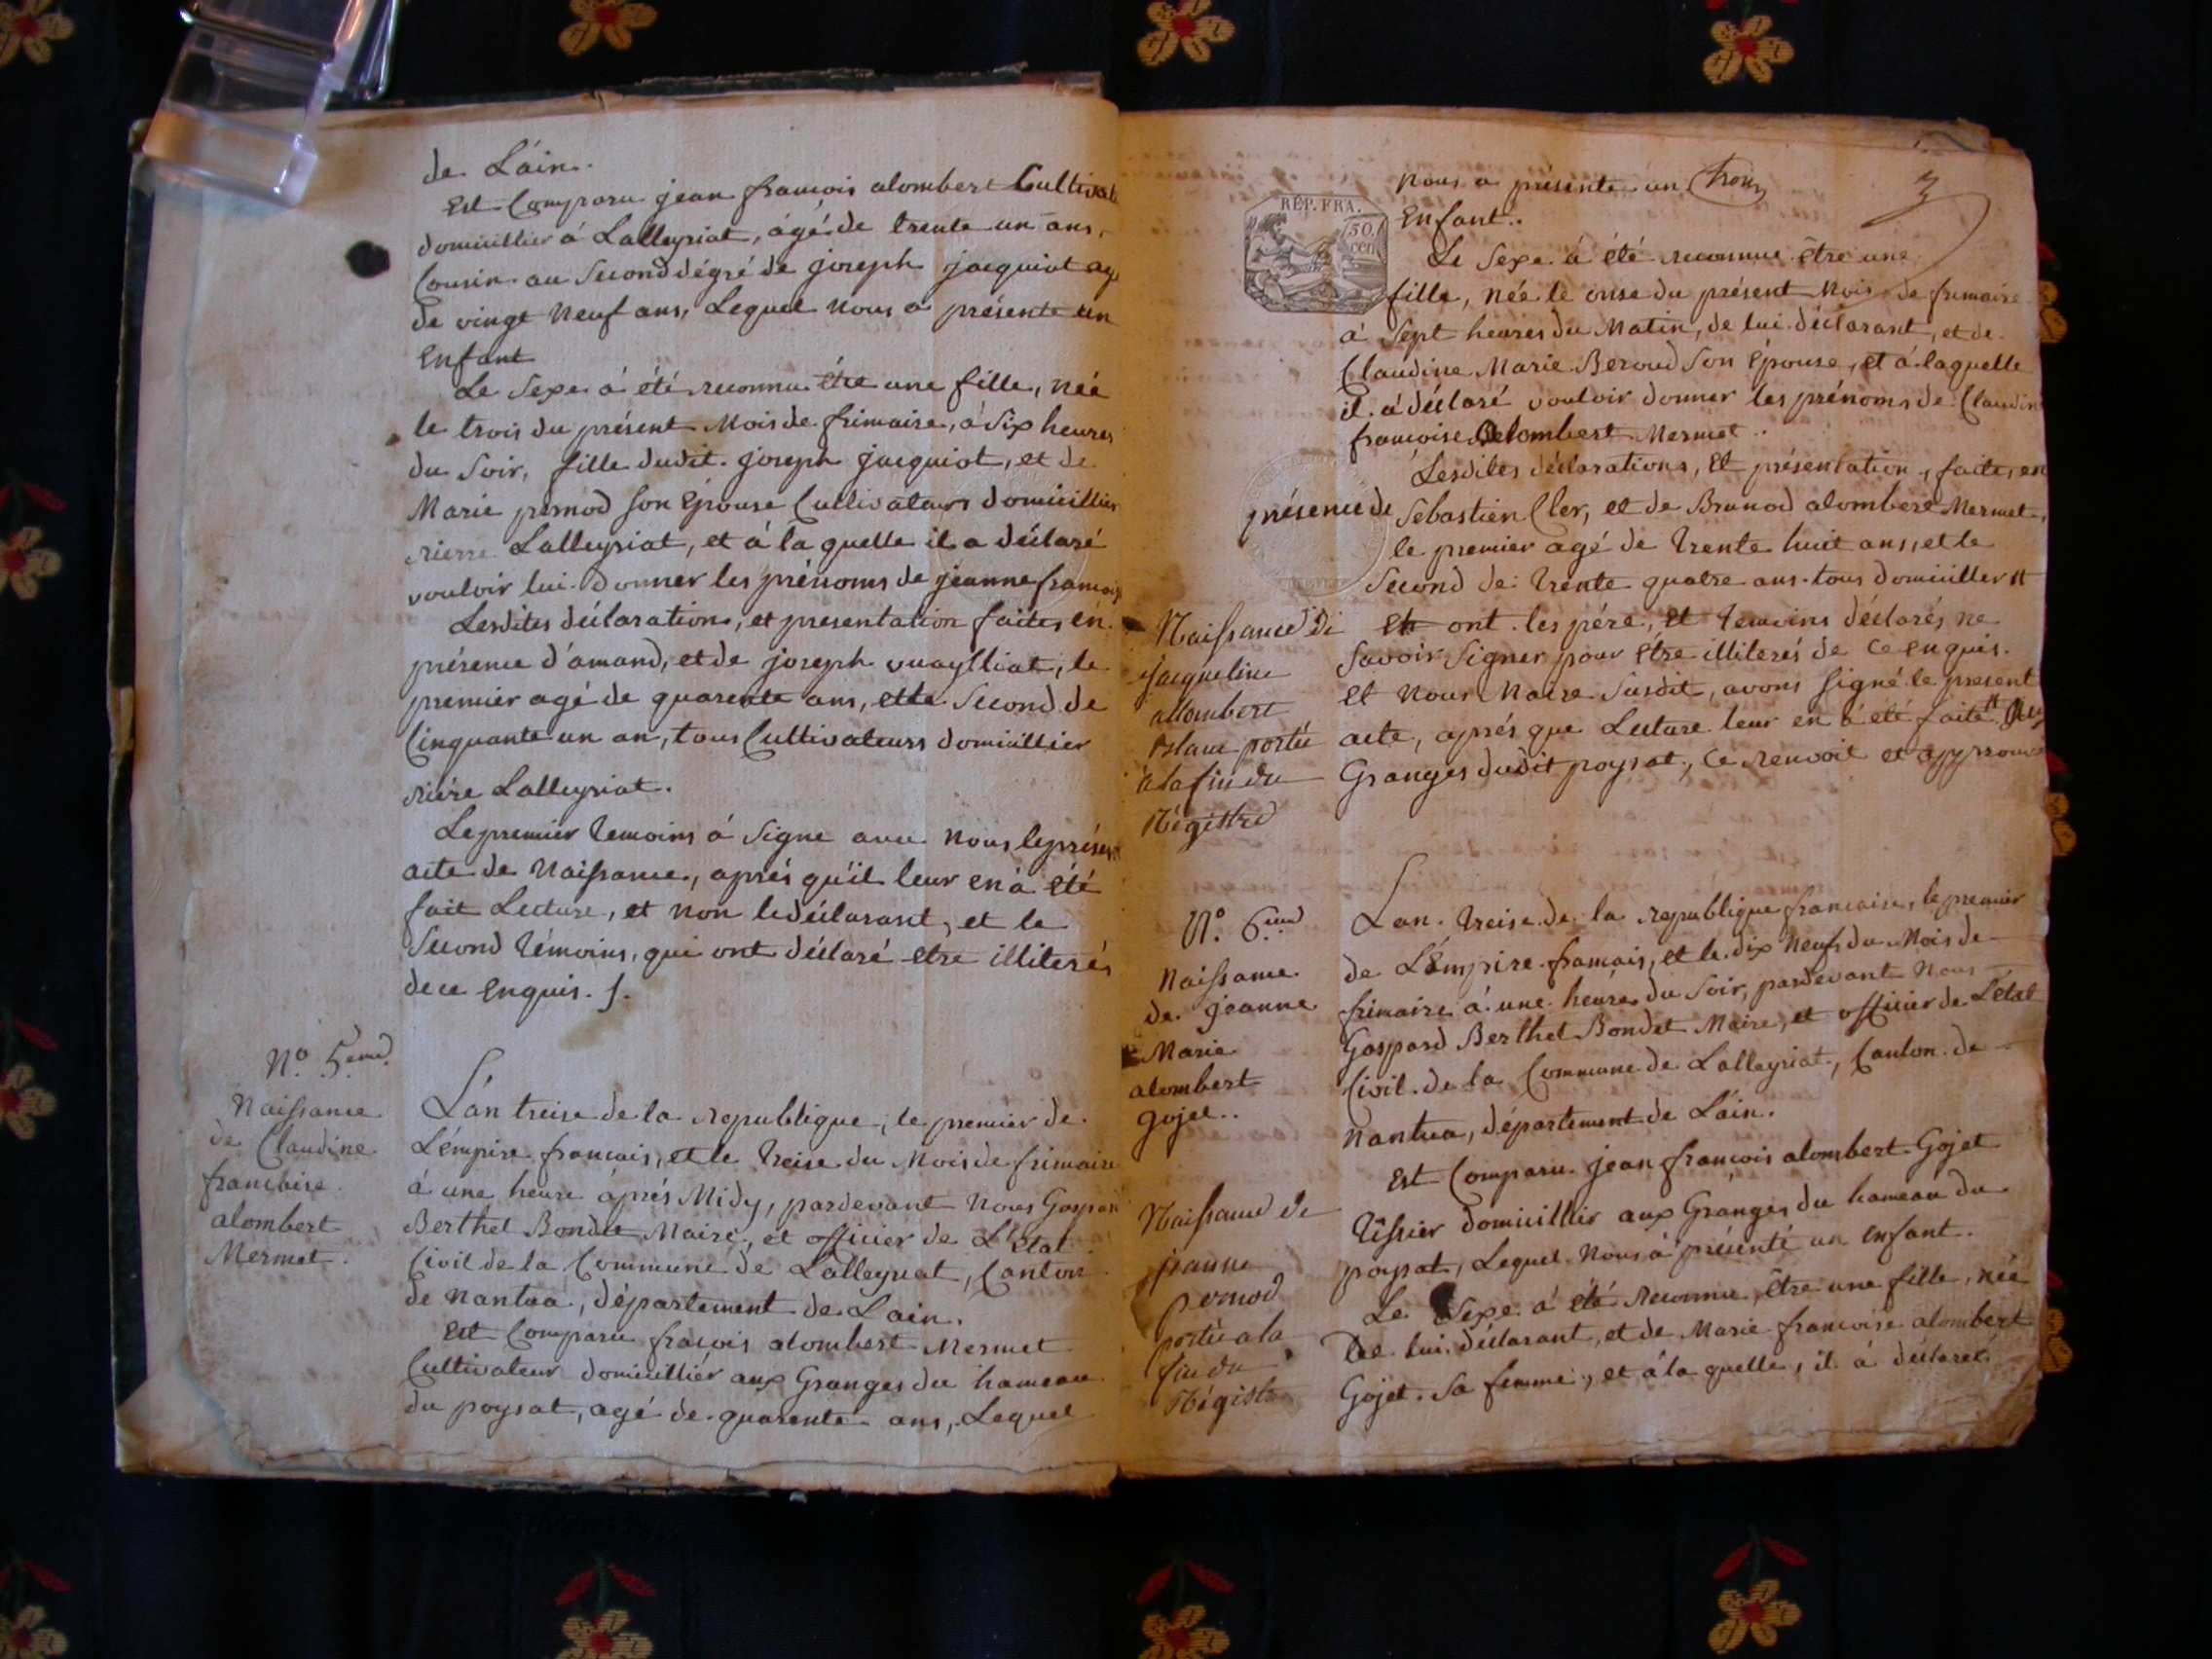 de Láin.
Est Comparu jean francois alombert Cultivat
domicillier á Lalleyriat, ágé de trente un ans,
Cousin au Second dégré de joseph jacquiot ag
de vingt Neuf ans, Lequel Nous á présente un
Enfant
Le Sexe á été reconnu être une fille, née
le trois du présent Mois de frimaire, á Six heures
du Soir, fille dudit joseph jacquiot, et de
Marie pernod son Epouse Cultivateurs domicillier
rierre Lalleyriat, et á la quelle il a déclaré
vouloir lui donner les prénoms de jeanne francoi
Lesdites déclarations, et presentation faites en
présence d'amand, et de joseph vuaylliat, le
premier agé de quarente ans, et le Second de
Cinquante un an, tous Cultivateurs domicillier
riére Lalleyriat.
Le premier temoins á Signe avec Nous le présen
acte de Naissance, aprés qu'il leur en á eté
fait Lecture, et non le déclarant, et le
Second témoins, qui ont déclaré etre illiterés
de ce enquis.
N.º 5.eme
Naissance
de Claudine
francoise
alombert
Mermet.
L'án treise de la republique, le premier de
L'émpire francais, et le treise du Mois de frimaire
á une heure áprés Midy, pardevant Nous Gaspar
Berthet Bondet Maire, et officier de L'état
Civil de la Commune de Lalleyriat, Canton
de Nantua, département de Lain.
Est Comparu fracois alombert Mermet
Cultivateur domicilliér aux Granges du hameau
du poysat, agé de quarente ans, Lequel
3
nous a présente un
Enfant..
REP. FRA.
50.
cen.
Le Sexe á été reconnue être une
fille, née le onse du présent Mois de frimaire
á Sept heures du Matin, de lui déclarant, et de
Claudine Marie Beroud Son épouse, et á laquelle
il á déclaré vouloir donner les prénoms de Claudin
francoise alombert Mermet..
Lesdites déclarations, Et présentation, faite, en
présence de Sebastien Cler, et de Brunod alombert Mermet,
le premier agé de trente huit ans, et le
Second de trente quatre ans. tous domicillier #
et ont les pére, et temoins déclarés ne
Savoir Signer pour être illiterés de ce enquis.
Et Nous Maire Susdit, avons signé le present
acte, aprés que Lecture leur en á été faite #
Granges dudit poysat, Ce renvoit et approuvé
Naissance de
jacqueline
allombert
portée
á la fin du
Régistre
N.º 6.eme
Naissance
de jeanne
Marie
alombert
Gojet..
Lan treise de la republique francaise, le premier
de L'émpire francais, et le dix Neuf du Mois de
frimaire á une heure du Soir, pardevant Nous
Gaspard Berthet Bondet Maire, et officier de L'état
Civil de la Commune de Lalleyriat, Canton de
Nantua, département de Láin.
Est Comparu jean francois alombert Gojet
tissier domicillier aux Granges du hameau du
poysat, Lequel Nous á présenté un Enfant.
Le Sexe á été reconnu, être une fille, née
de lui déclarant, et de Marie francoise alombert
Gojet. Sa femme, et á la quelle, il á déclaré
Naissance de
jeanne
pernod
portée a la
fin du
Régistre